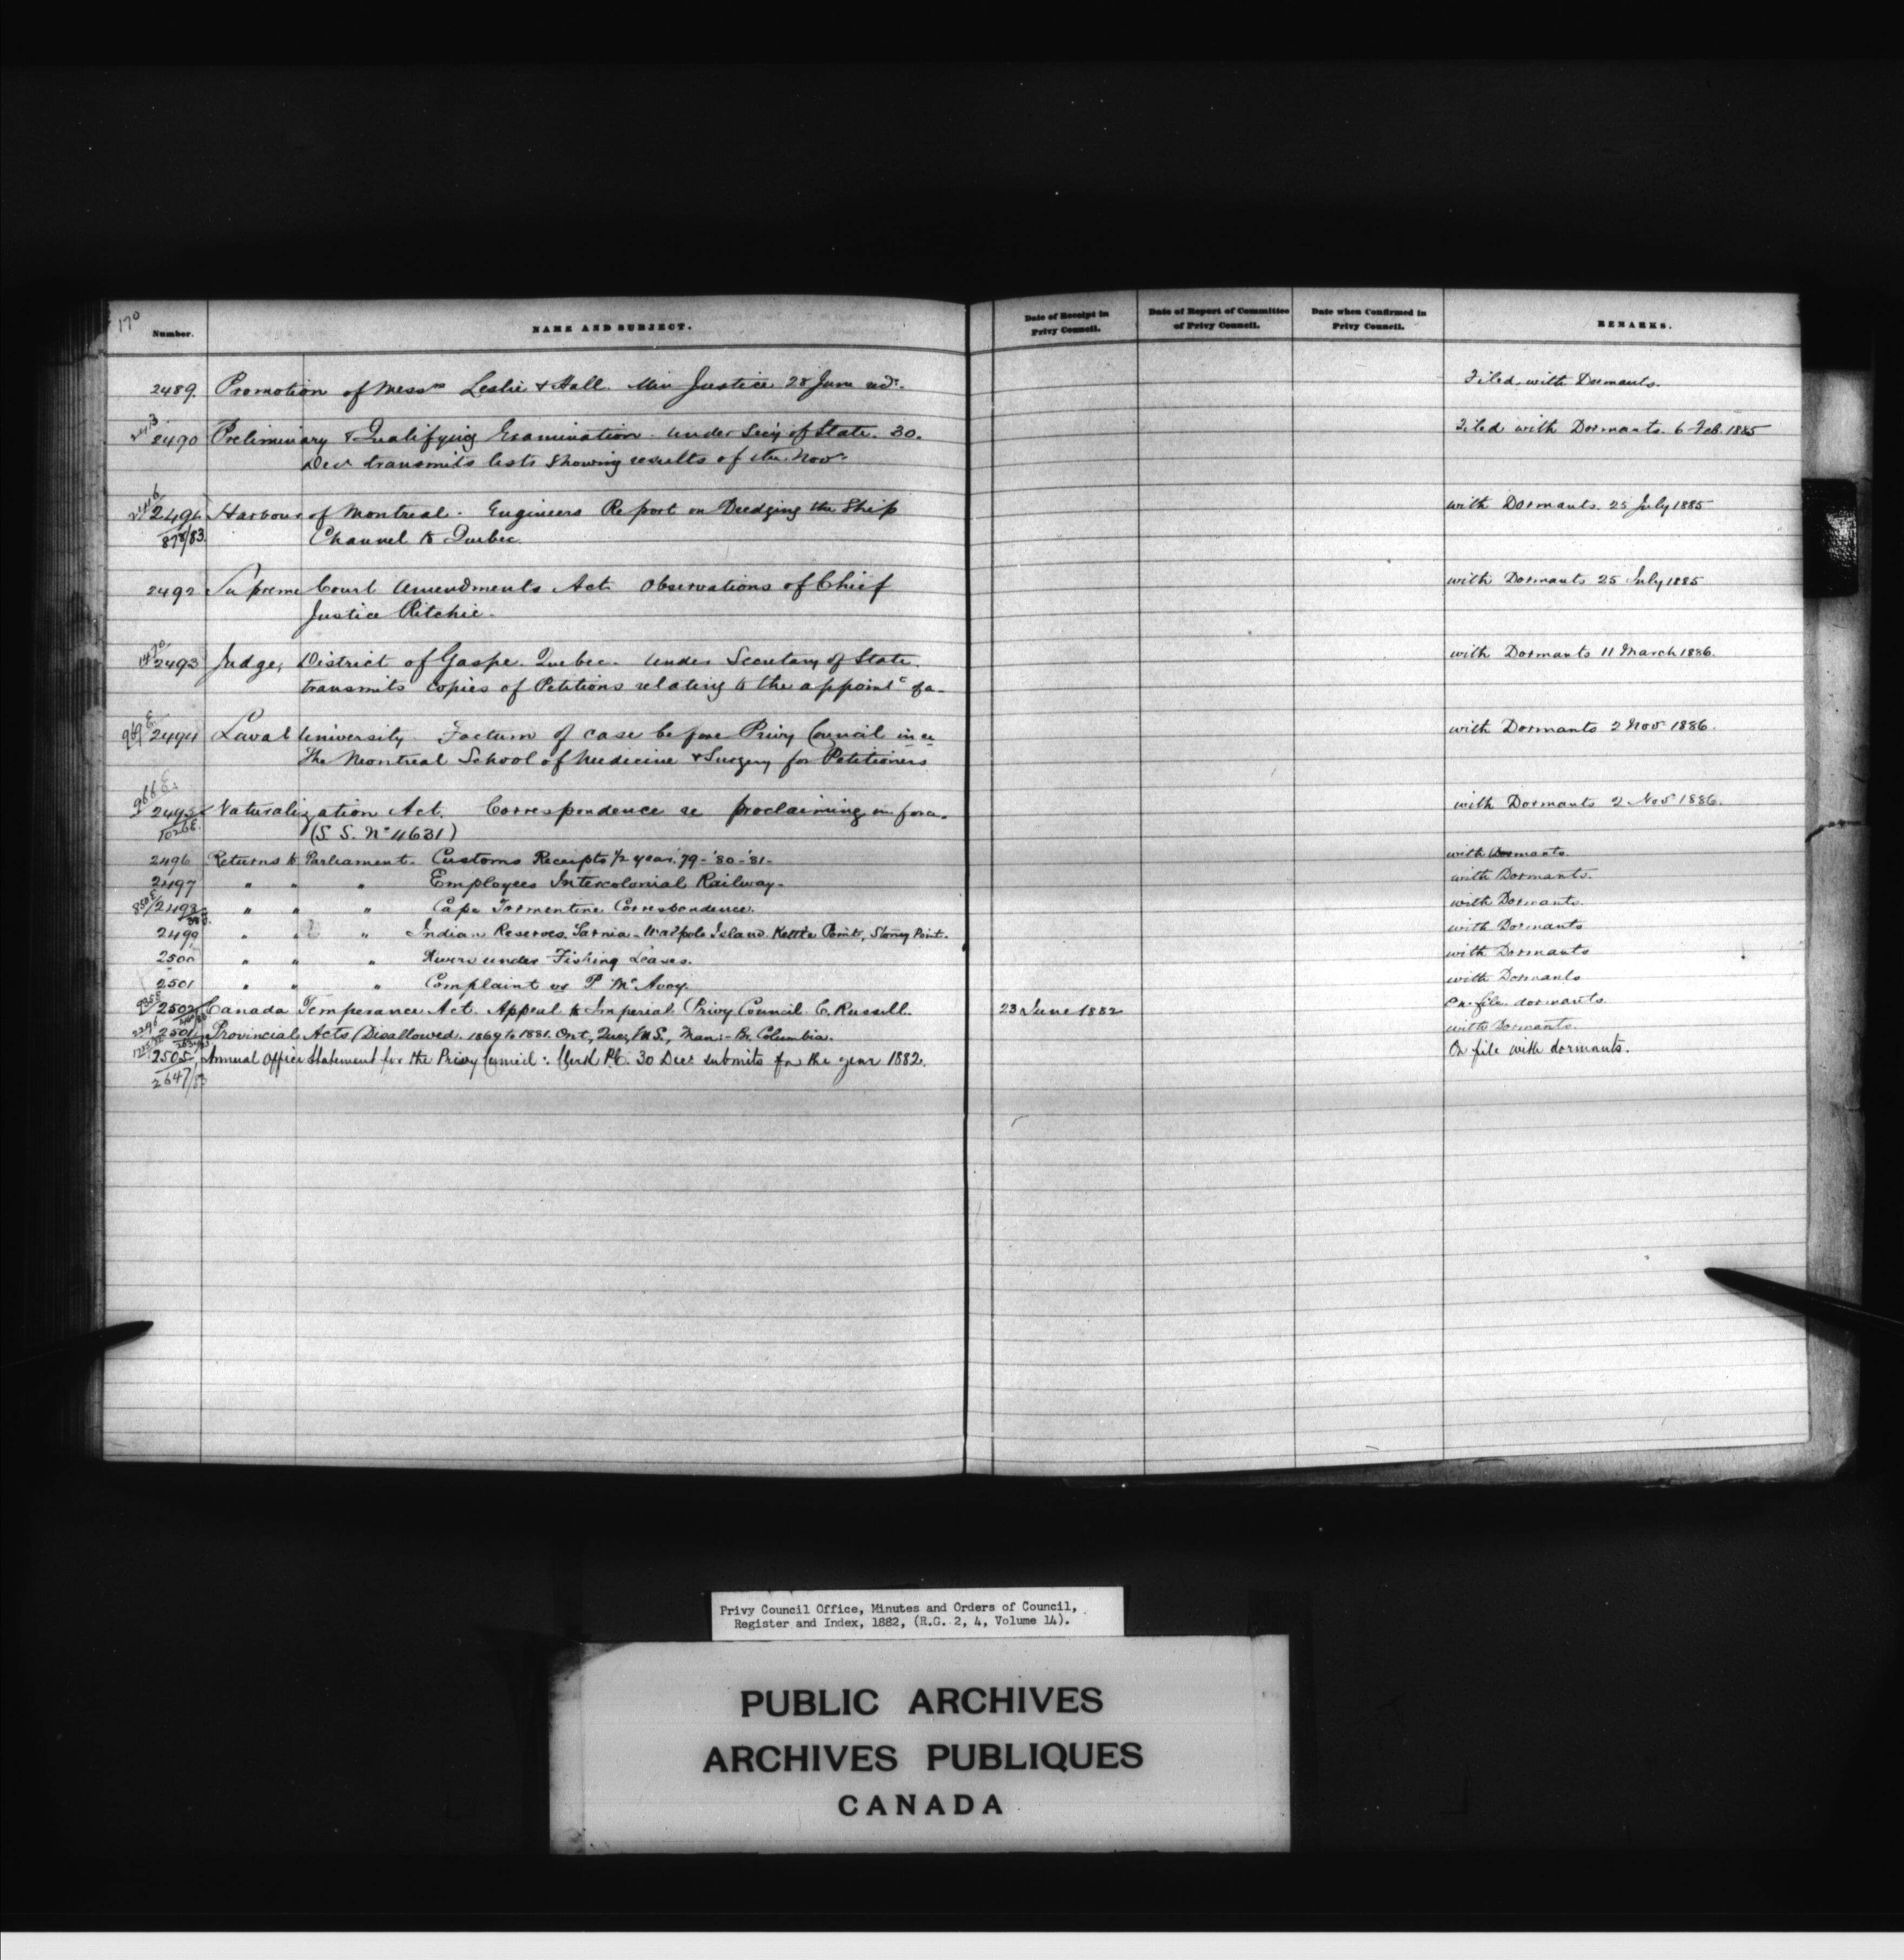 170
Number. NAME AND SUBJECT. Date of Receipt in Privy Council. Date of Report of Committee of Privy Council. Date when Confirmed in Privy Council. REMARKS.
2489. Promotion of Messrs Leslie & Hall. Min Justice 28 June Filed with Dormants.
2490 Preliminary & Qualifying Examination. Under Secy of State. 30. Filed with Dormants. 6 Feb. 1885
Decr transmits lists showing results of the Novr
2491 Harbour of Montreal. Engineers Report on Dredging the Ship with Dormants. 25 July 1885
878/83. Channel to Quebec.
2492 Supreme Court Amendments Act. Observations of Chief with Dormants 25 July 1885
Justice Ritchie.
2493 Judge, District of Gaspe. Quebec. Under Secretary of State. with Dormants 11 March 1886.
transmits copies of Petitions relating to the appointt of a
969 E 2494 Laval University. Factum of case before Privy Council in re with Dormants 2 Nov 1886.
The Montreal School of Medicine & Surgery for Petitioners
966 E. 2495 Naturalization Act. Correspondence re proclaiming in force. with Dormants 2 Nov 1886.
1026 E. (S. S. No 4631)
2496 Returns to Parliament. Customs Receipts 1/2 year. '79-'80-'81- with Dormants.
2497 " " " Employees Intercolonial Railway. with Dormants.
2498 " " " Cape Tormentine Correspondence. with Dormants.
2499 " " " Indian Reserves. Sarnia - Walpole Island. Kettle Point, Stoney Point. with Dormants
2500 " " " Rivers under Fishing Leases. with Dormants
2501 " " " Complaint vs P McAvoy. with Dormants
2502 Canada Temperance Act. Appeal to Imperial Privy Council C. Russell. 23 June 1882 On file dormants
2501 Provincial Acts Disallowed. 1869 to 1881. Ont, Que, N.S., Man:- Br. Columbia. with Dormants.
2505 Annual Office Statement for the Privy Council: Clerk P.C. 30 Decr submits for the year 1882. On file with dormants.
2647/83
Privy Council Office, Minutes and Orders of Council,
Register and Index, 1882, (R.G. 2, 4, Volume 14).
PUBLIC ARCHIVES
ARCHIVES PUBLIQUES
CANADA